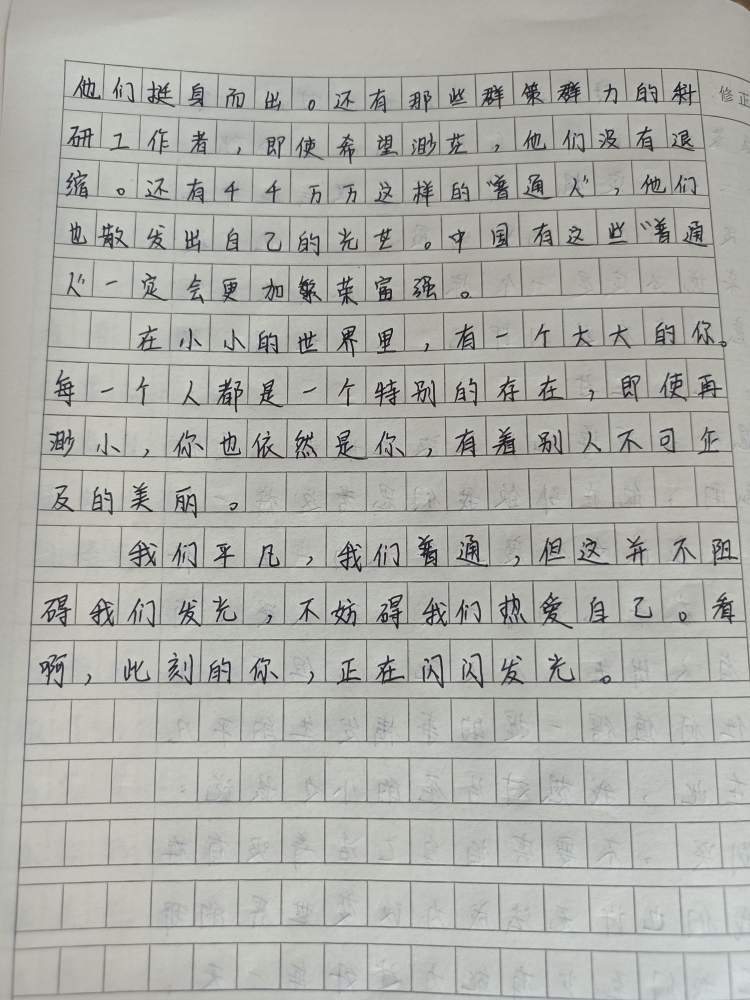 修正
他们挺身而出。还有那些群策群力的科
研工作者,即使希望渺茫,他们没有退
缩。还有千千万万这样的"普通人",他们
也散发出自己的光芒。中国有这些"普通
人"一定会更加繁荣富强。
在小小的世界里,有一个大大的你。
每一个人都是一个特别的存在,即使再
渺小,你也依然是你,有着别人不可企
及的美丽。
我们平凡,我们普通,但这并不阻
碍我们发光,不妨碍我们热爱自己。看
啊,此刻的你,正在闪闪发光。